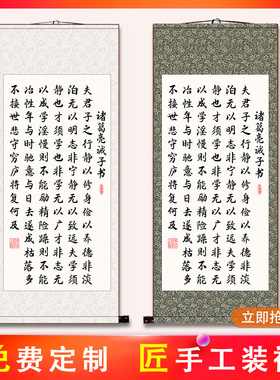 诸葛亮诫子书
夫君子之行静以修身俭以养德非淡
泊无以明志非宁静无以致远夫学须
静也才须学也非学无以广才非志无
以成学淫慢则不能励精险躁则不能
冶性年与时驰意与日去遂成枯落多
不接世悲守穷庐将复何及
诸葛亮诫子书
夫君子之行静以修身俭以养德非淡
泊无以明志非宁静无以致远夫学须
静也才须学也非学无以广才非志无
以成学淫慢则不能励精险躁则不能
冶性年与时驰意与日去遂成枯落多
不接世悲守穷庐将复何及
立即抢
免费定制
匠手工装裱